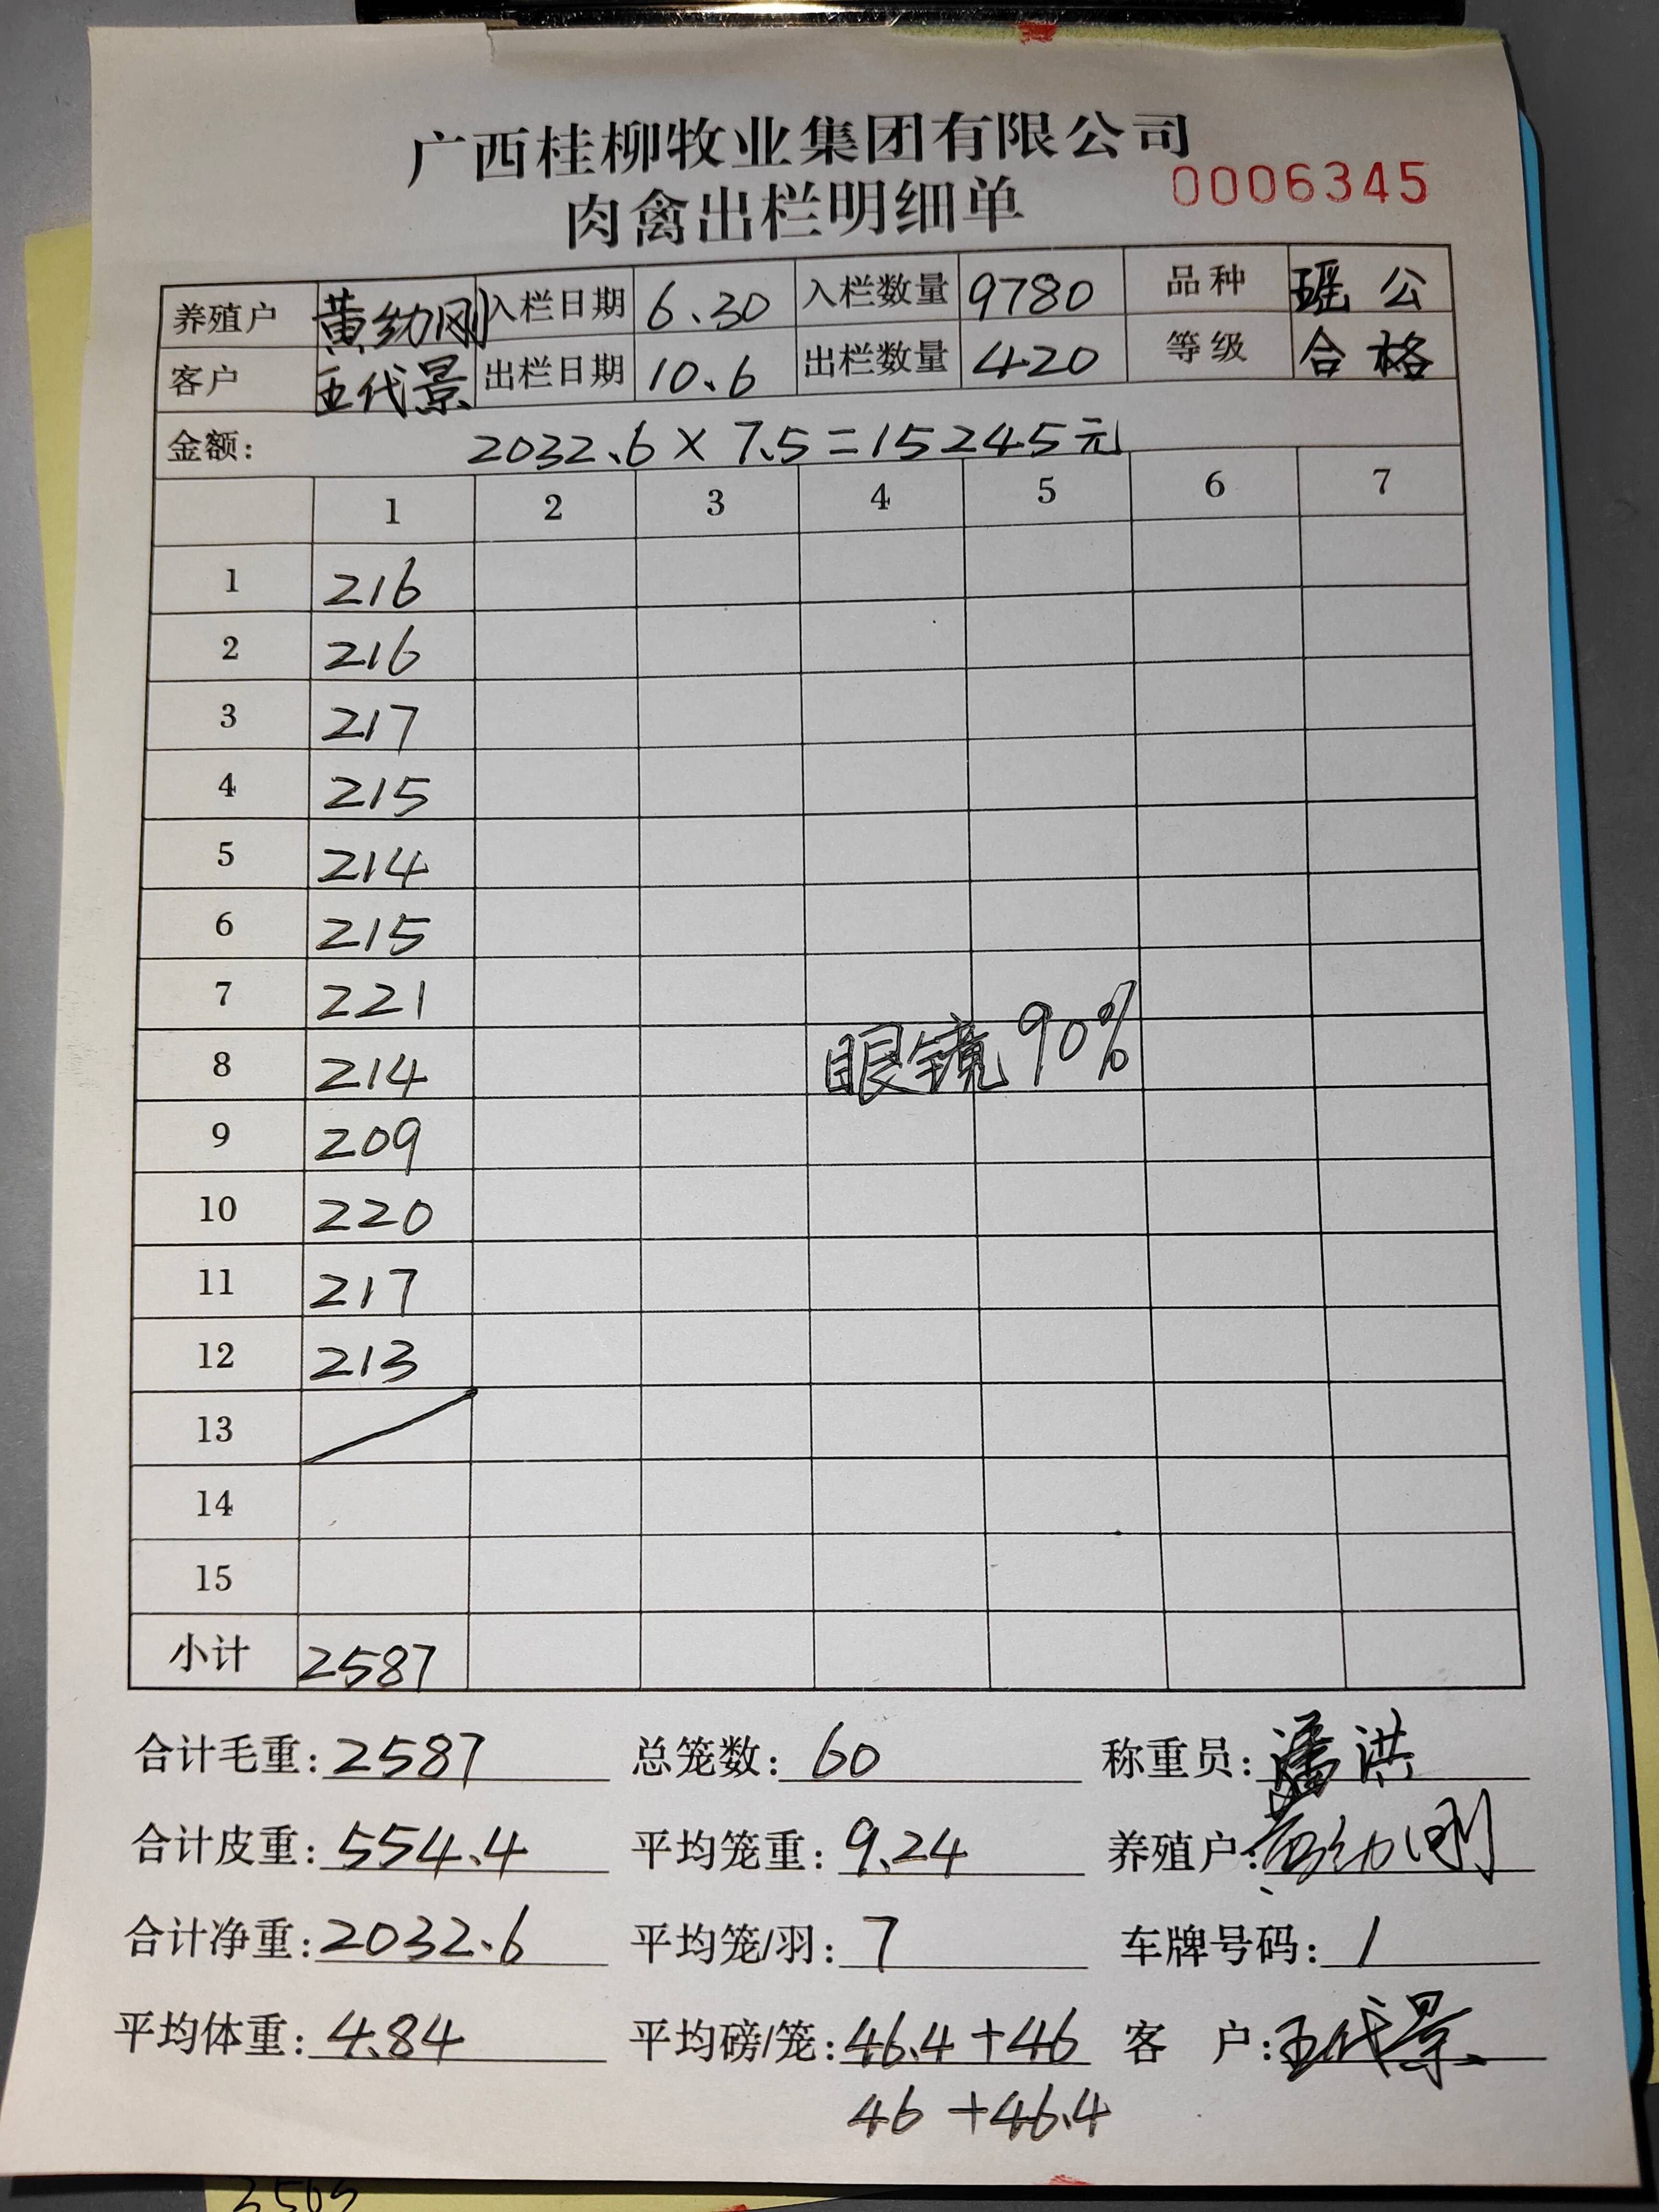 广西桂柳牧业集团有限公司
肉禽出栏明细单 0006345
养殖户 黄幼刚 入栏日期 6.30 入栏数量 9780 品种 瑶公
客户 王代景 出栏日期 10.6 出栏数量 420 等级 合格
金额: 2032.6×7.5=15245元
1 2 3 4 5 6 7
1 216
2 216
3 217
4 215
5 214
6 215
7 221
8 214 眼镜90%
9 209
10 220
11 217
12 213
13
14
15
小计 2587
合计毛重: 2587 总笼数: 60 称重员: 潘洪
合计皮重: 554.4 平均笼重: 9.24 养殖户: 黄幼刚
合计净重: 2032.6 平均笼/羽: 7 车牌号码: /
平均体重: 4.84 平均磅/笼: 46.4+46 客 户: 王代景
46+46.4